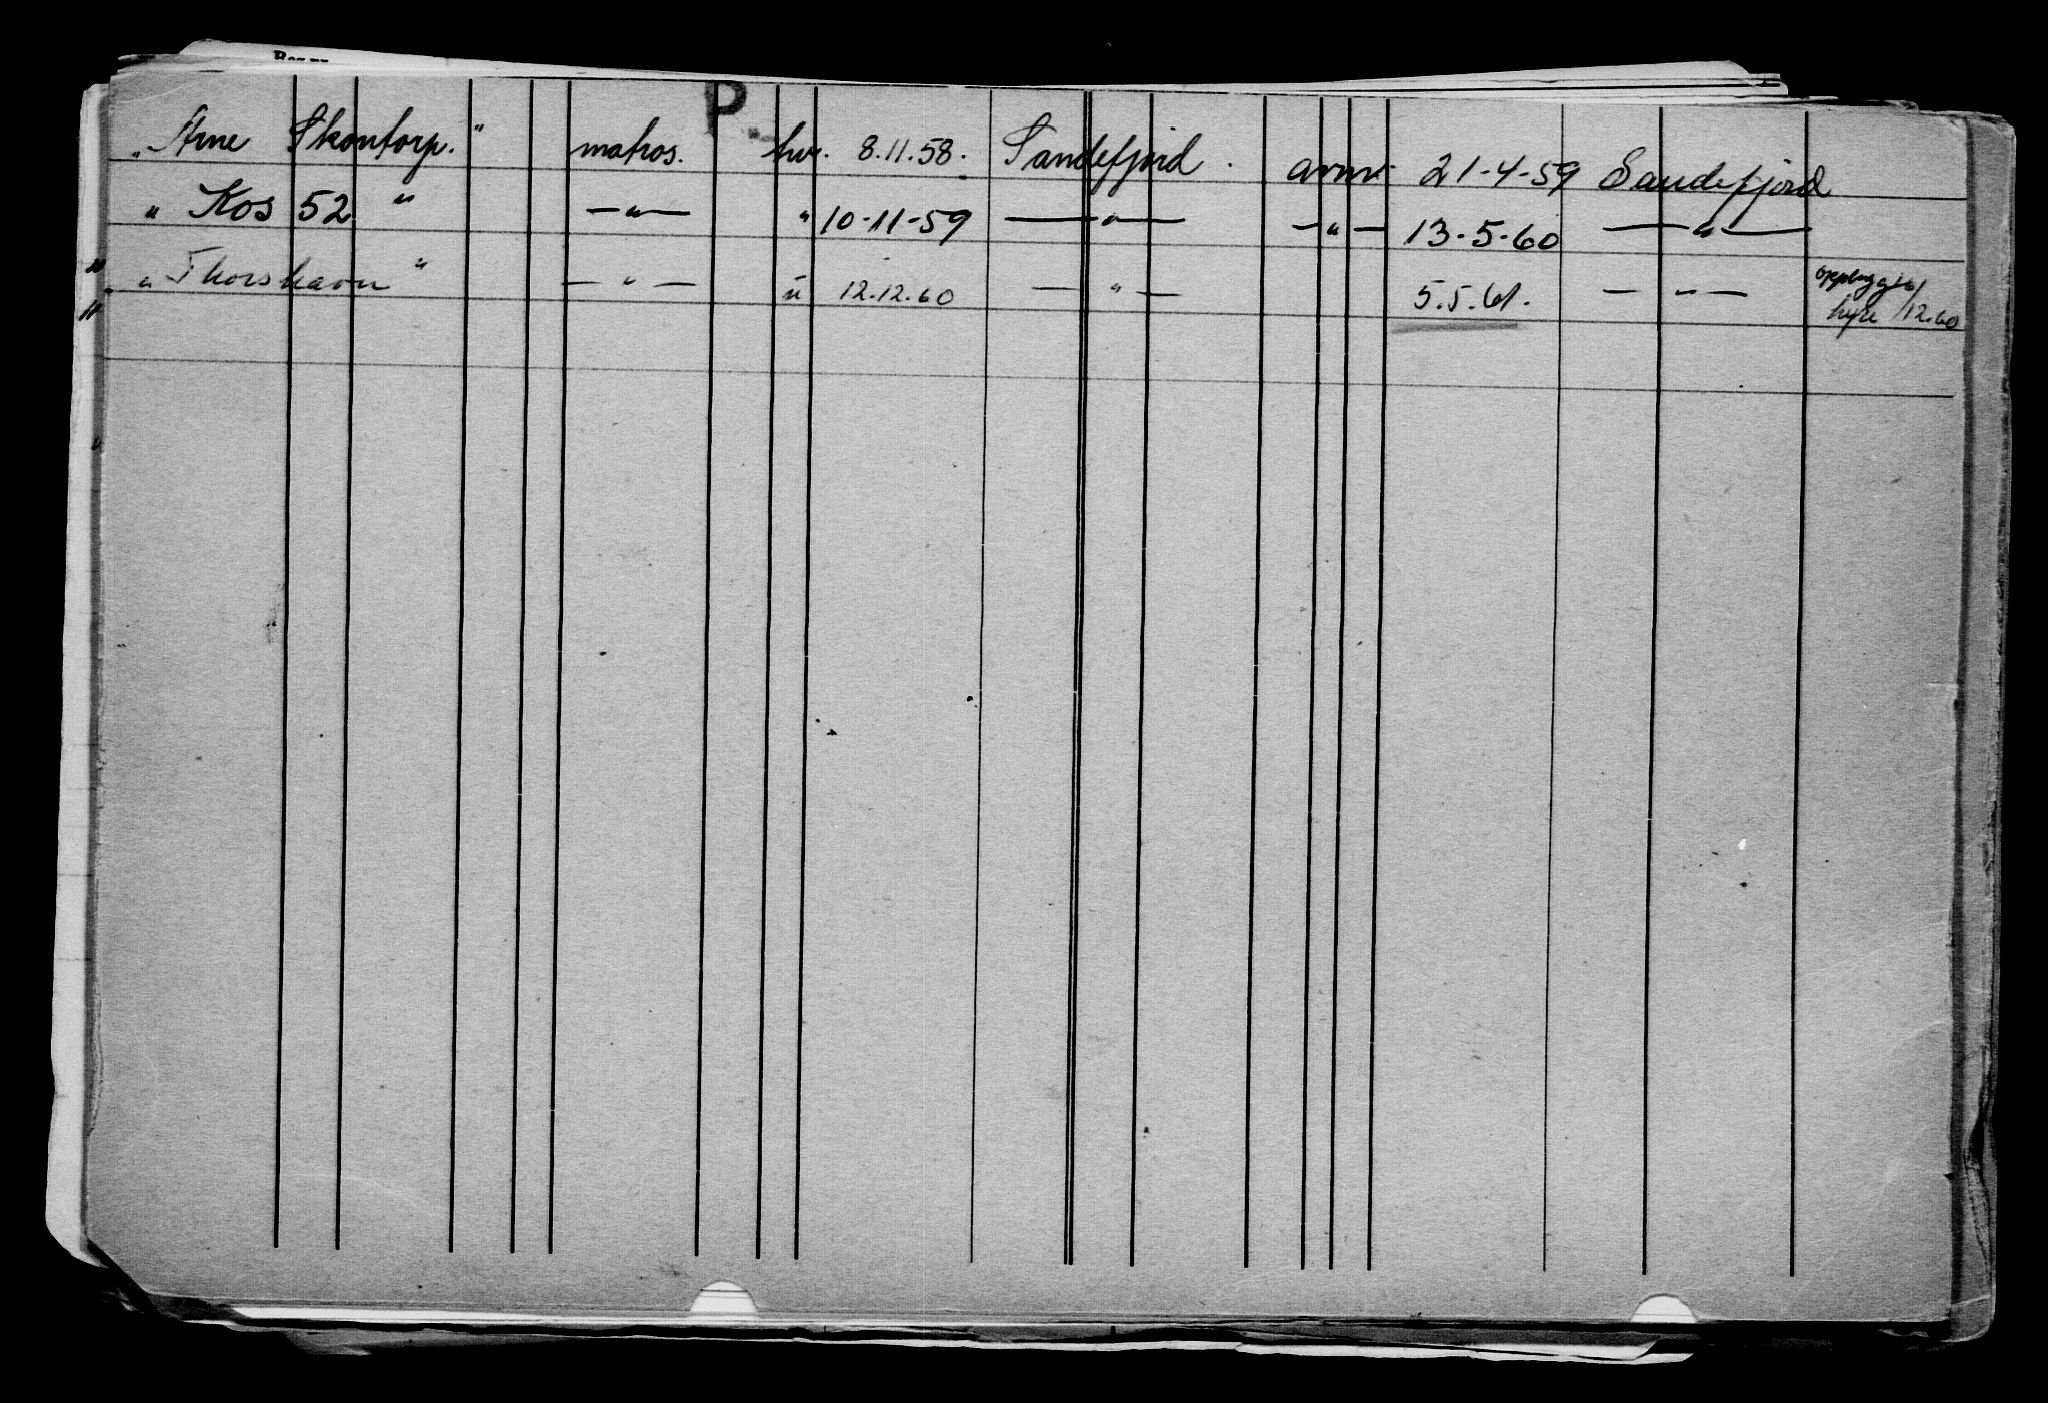 P.
"Arne Skontorp." matros. hvr. 8.11.58. Sandefjord. avm. 21-4-59 Sandefjord
" Kos 52 " —"— " 10-11-59 —"— —"— 13-5-60 —"—
" Thorshavn " —"— " 12.12.60 —"— 5.5.61. —"— opplagt
hyre /12.60